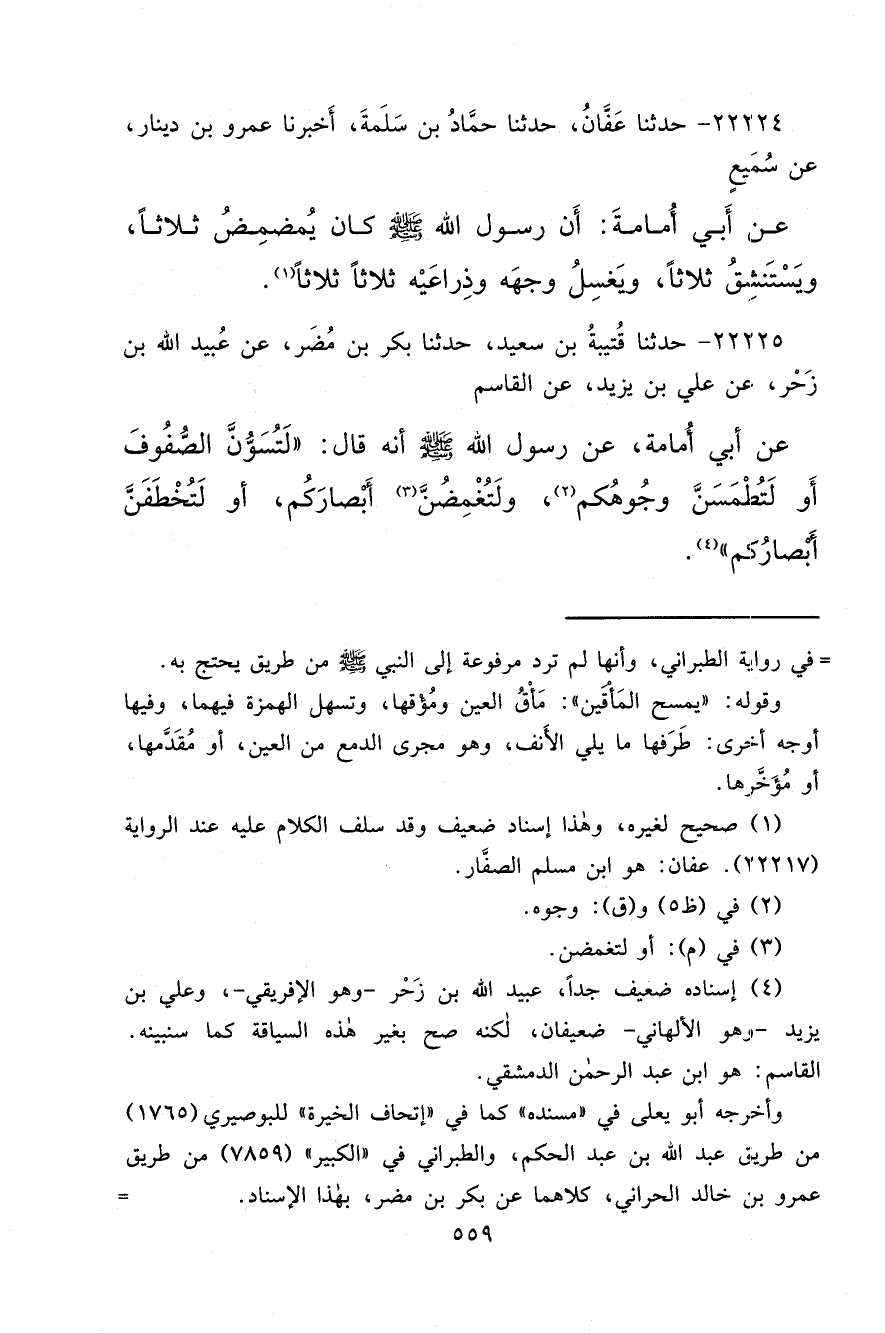 ٢٢٢٢٤- حدثنا عَفَّانُ، حدثنا حمَّادُ بن سَلَمةَ، أَخبرنا عمرو بن دينار،
عن سُمَيعٍ
عـن أَبـي أُمـامـةَ: أَن رسـول الله ﷺ كـان يُمضمِـضُ ثـلاثـاً،
ويَسْتَنشِقُ ثلاثاً، ويَغسِلُ وجهَه وذِراعَيْه ثلاثاً ثلاثاً(١).
٢٢٢٢٥- حدثنا قُتيبةُ بن سعيد، حدثنا بكر بن مُضَر، عن عُبيد الله بن
زَحْر، عن علي بن يزيد، عن القاسم
عن أبي أُمامة، عن رسول الله ﷺ أنه قال: «لَتُسَوُّنَّ الصُّفُوفَ
أَو لَتُطْمَسَنَّ وجُوهُكم(٢)، ولَتُغْمِضُنَّ(٣) أَبْصارَكُم، أو لَتُخْطَفَنَّ
أَبْصارُكم»(٤).
= في رواية الطبراني، وأنها لم ترد مرفوعة إلى النبي ﷺ من طريق يحتج به.
وقوله: «يمسح المَأْقَين»: مَأْقُ العين ومُؤْقها، وتسهل الهمزة فيهما، وفيها
أوجه أخرى: طَرَفها ما يلي الأَنف، وهو مجرى الدمع من العين، أو مُقَدَّمها،
أو مُؤَخَّرها.
(١) صحيح لغيره، وهٰذا إسناد ضعيف وقد سلف الكلام عليه عند الرواية
(٢٢٢١٧). عفان: هو ابن مسلم الصفَّار.
(٢) في (ظ٥) و(ق): وجوه.
(٣) في (م): أو لتغمضن.
(٤) إسناده ضعيف جداً، عبيد الله بن زَحْر -وهو الإفريقي-، وعلي بن
يزيد -وهو الألهاني- ضعيفان، لٰكنه صح بغير هٰذه السياقة كما سنبينه.
القاسم: هو ابن عبد الرحمٰن الدمشقي.
وأخرجه أبو يعلى في «مسنده» كما في «إتحاف الخيرة» للبوصيري (١٧٦٥)
من طريق عبد الله بن عبد الحكم، والطبراني في «الكبير» (٧٨٥٩) من طريق
عمرو بن خالد الحراني، كلاهما عن بكر بن مضر، بهٰذا الإسناد. =
٥٥٩